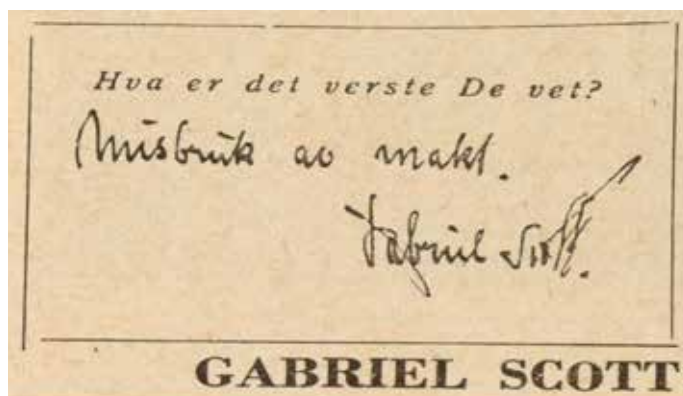 Hva er det verste De vet?
Misbruk av makt.
Gabriel Scott.
GABRIEL SCOTT